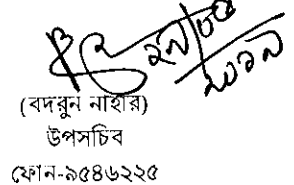 (বদরুন নাহার)
উপসচিব
ফোন-৯৫৪৬২২৫